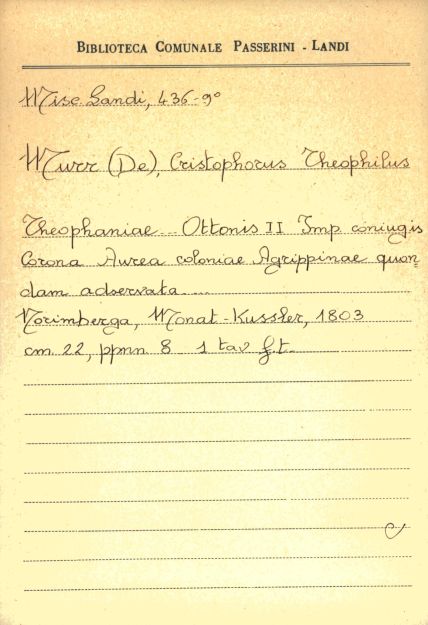 BIBLIOTECA COMUNALE PASSERINI - LANDI
Misc Landi, 436-9°
Murr (De), Cristophorus Theophilus
Theophaniae... Ottonis II Imp coniugis
Corona Aurea coloniae Agrippinae quon=
dam adservata....
Norimberga, Monat-Kussler, 1803
cm. 22, ppnn 8 1 tav f.t.